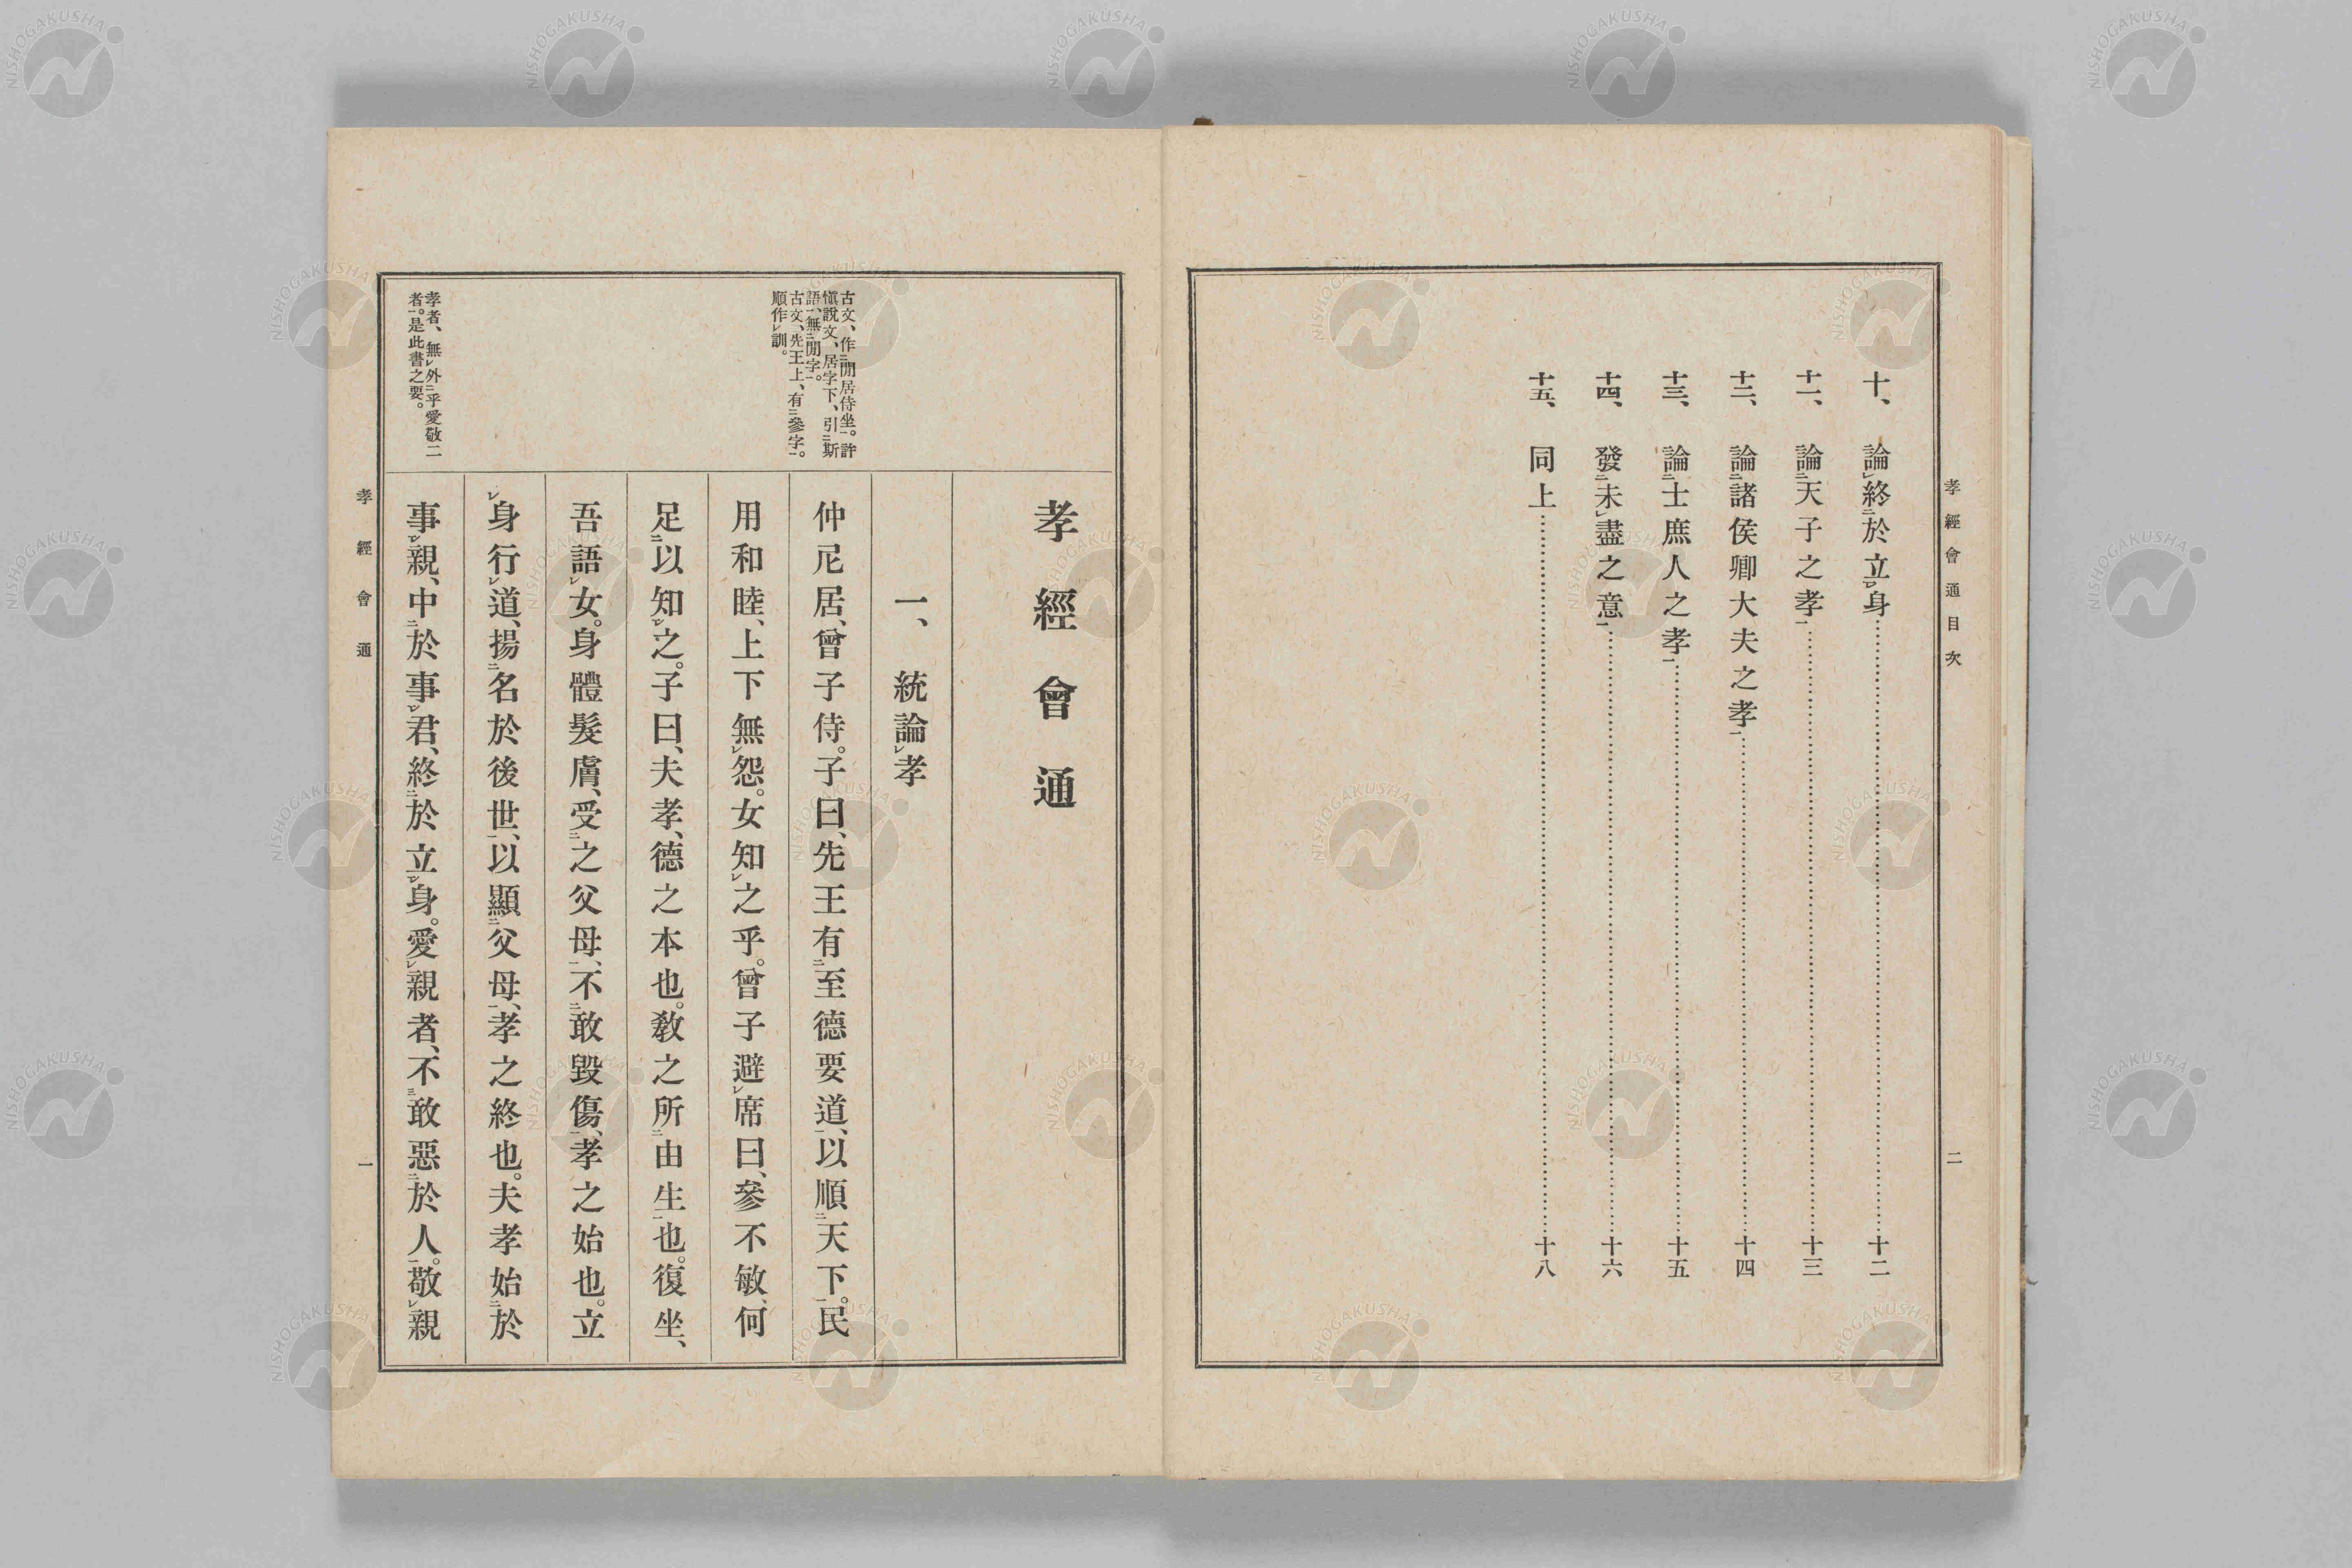 孝經會通目次
二
十、論㆑終㆓於立㆒㆑身……十二
十一、論㆓天子之孝㆒……十三
十二、論㆓諸侯卿大夫之孝㆒……十四
十三、論㆓士庶人之孝㆒……十五
十四、發㆓未㆑盡之意㆒……十六
十五、同上……十八
古文、作㆓閒居侍坐㆒。許
愼說文、居字下、引㆓斯
語㆒、無㆓閒字㆒。
古文、先王上、有㆓參字㆒。
順作㆑訓。
孝者、無㆑外㆓乎愛敬二
者㆒。是此書之要。
孝經會通
一、統論㆑孝
仲尼居、曾子侍。子曰、先王有㆓至德要道㆒、以順㆓天下㆒。民
用和睦、上下無㆑怨。女知㆑之乎。曾子避㆑席曰、參不敏、何
足㆓以知㆒㆑之。子曰、夫孝、德之本也。敎之所㆓由生㆒也。復坐、
吾語㆑女。身體髮膚、受㆓之父母㆒、不㆓敢毀傷㆒、孝之始也。立
㆑身行㆑道、揚㆓名於後世㆒、以顯㆓父母㆒、孝之終也。夫孝始㆓於
事㆒㆑親、中㆓於事㆒㆑君、終㆓於立㆒㆑身。愛㆑親者、不㆔敢惡㆓於人㆒。敬㆑親
孝經會通
一